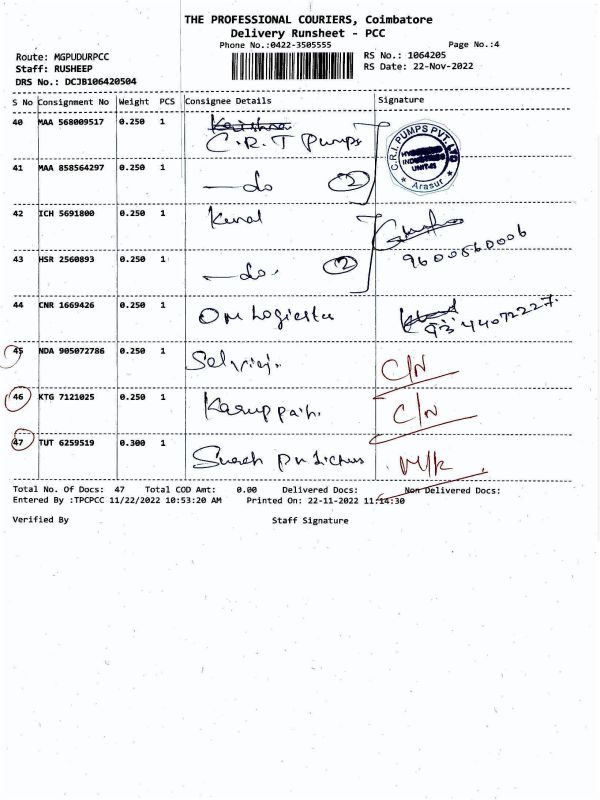 THE PROFESSIONAL COURIERS, Coimbatore
Delivery Runsheet - PCC
Phone No.:0422-3505555
Page No.:4
Route: MGPUDURPCC
RS No.: 1064205
Staff: RUSHEEP
RS Date: 22-Nov-2022
DRS No.: DCJB106420504
S No Consignment No Weight PCS Consignee Details Signature
40 MAA 568009517 0.250 1 Krishna
C.R.I Pumps
C.R.I. PUMPS PVT. LTD
UNIT-II
Arasur
41 MAA 858564297 0.250 1 —do 2
42 ICH 5691800 0.250 1
43 HSR 2560893 0.250 1 —do. 2 9600560006
44 CNR 1669426 0.250 1 9344072227.
45 NDA 905072786 0.250 1 Selviraj. C/N
46 KTG 7121025 0.250 1 Karuppaih. C/N
47 TUT 6259519 0.300 1 Suresh
Total No. Of Docs: 47 Total COD Amt: 0.00 Delivered Docs: Non Delivered Docs:
Entered By :TPCPCC 11/22/2022 10:53:20 AM Printed On: 22-11-2022 11:14:30
Verified By Staff Signature